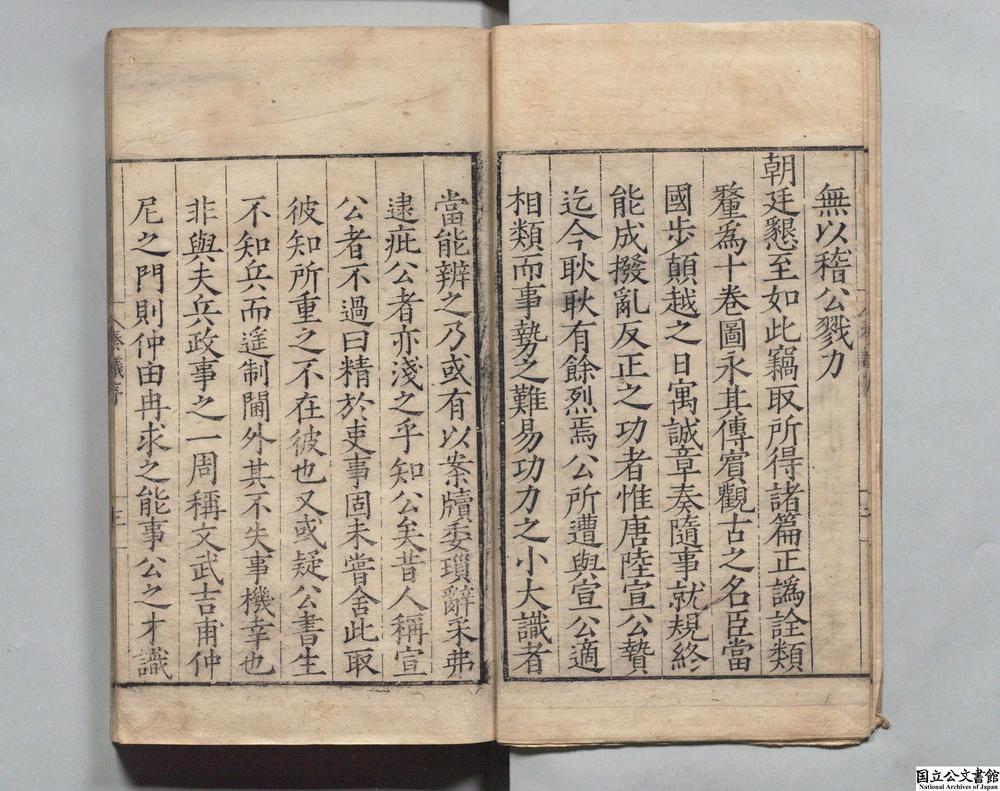 無以稽公戮力
朝廷懇至如此竊取所得諸篇正譌詮類
釐爲十卷圖永其傳賓觀古之名臣當
國步顛越之日寓誠章奏隨事就規終
能成撥亂反正之功者惟唐陸宣公贄
迄今耿耿有餘烈焉公所遭與宣公適
相類而事勢之難易功力之小大識者
當能辨之乃或有以案牘委瑣辭柔弗
逮疵公者亦淺之乎知公矣昔人稱宣
公者不過曰精於吏事固未嘗舍此取
彼知所重之不在彼也又或疑公書生
不知兵而遥制閫外其不失事機幸也
非與夫兵政事之一周稱文武吉甫仲
尼之門則仲由冉求之能事公之才識
奏議序
三
国立公文書館
National Archives of Japan